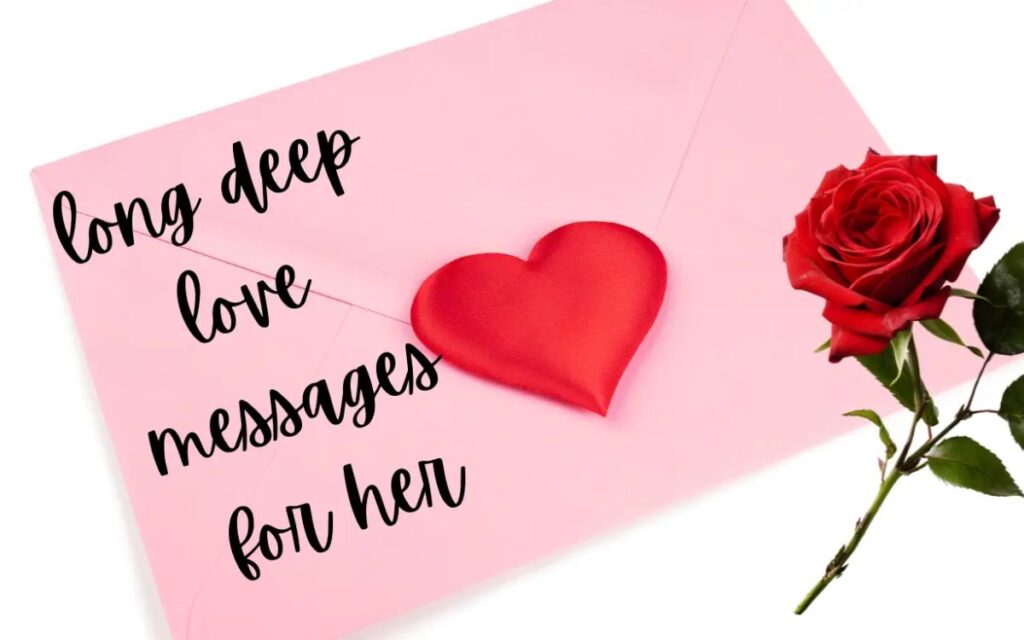 long deep
love
messages
for her